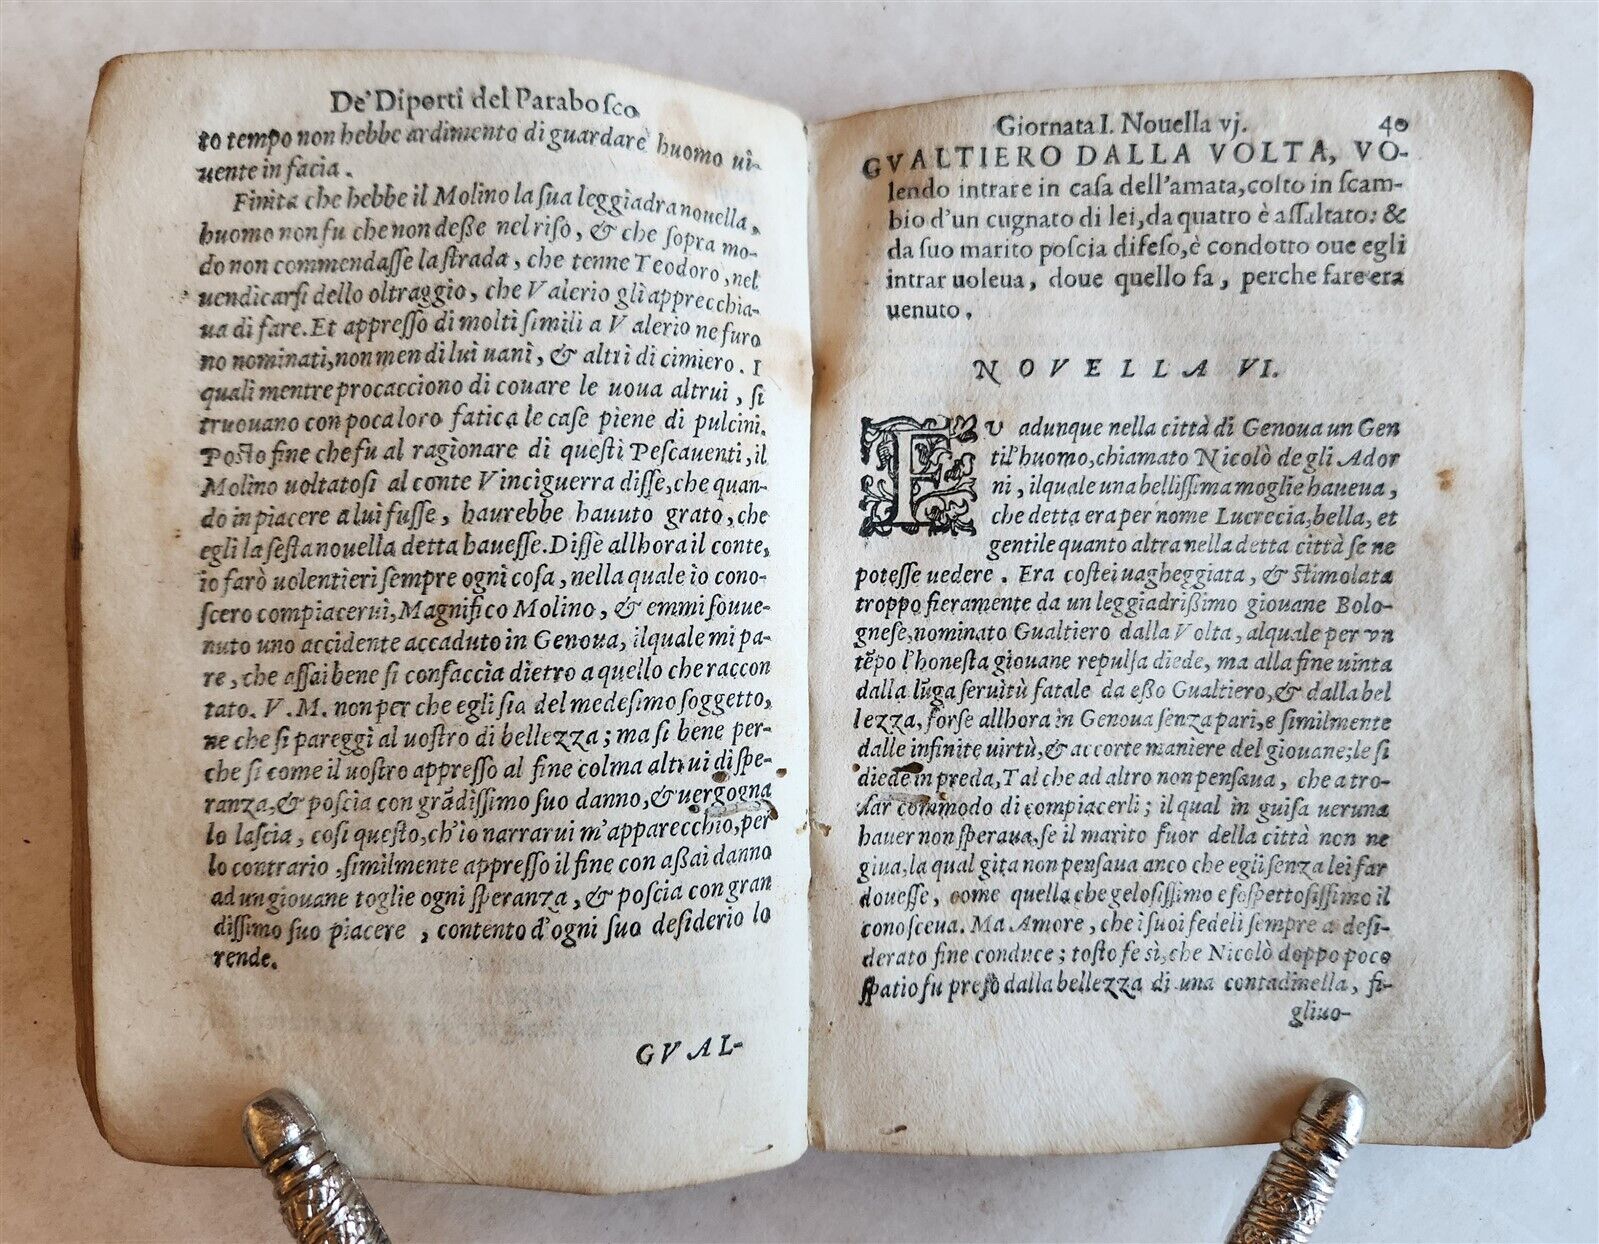 De' Diporti del Parabosco
to tempo non hebbe ardimento di guardare huomo ui-
uente in facia.
Finita che hebbe il Molino la sua leggiadra nouella,
huomo non fu che non deße nel riso, & che sopra mo-
do non commendasse la strada, che tenne Teodoro, nel
uendicarsi dello oltraggio, che Valerio gli apprecchia-
ua di fare. Et appresso di molti simili a Valerio ne furo
no nominati, non men di lui uani, & altri di cimiero. I
quali mentre procacciono di couare le uoua altrui, si
truouano con poca loro fatica le case piene di pulcini.
Posto fine che fu al ragionare di questi Pescauenti, il
Molino uoltatosi al conte Vinciguerra disse, che quan-
do in piacere a lui fusse, haurebbe hauuto grato, che
egli la sesta nouella detta hauesse. Disse allhora il conte,
io farò uolentieri sempre ogni cosa, nella quale io cono-
scero compiacerui, Magnifico Molino, & emmi souue-
nuto uno accidente accaduto in Genoua, ilquale mi pa-
re, che assai bene si confaccia dietro a quello che raccon
tato. V. M. non per che egli sia del medesimo soggetto,
ne che si pareggi al uostro di bellezza; ma si bene per-
che si come il uostro appresso al fine colma altrui di spe-
ranza, & poscia con grādissimo suo danno, & uergogna
lo lascia, cosi questo, ch'io narrarui m'apparecchio, per
lo contrario, similmente appresso il fine con aßai danno
ad un giouane toglie ogni speranza, & poscia con gran
dissimo suo piacere, contento d'ogni suo desiderio lo
rende.
GVAL-
Giornata I. Nouella vj. 40
GVALTIERO DALLA VOLTA, VO-
lendo intrare in casa dell'amata, colto in scam-
bio d'un cugnato di lei, da quatro è assaltato: &
da suo marito poscia difeso, è condotto oue egli
intrar uoleua, doue quello fa, perche fare era
uenuto.
NOVELLA VI.
FU adunque nella città di Genoua un Gen
til'huomo, chiamato Nicolò degli Ador
ni, ilquale una bellissima moglie haueua,
che detta era per nome Lucrecia, bella, et
gentile quanto altra nella detta città se ne
potesse uedere. Era costei uagheggiata, & stimolata
troppo fieramente da un leggiadrißimo giouane Bolo-
gnese, nominato Gualtiero dalla Volta, alquale per vn
tēpo l'honesta giouane repulsa diede, ma alla fine uinta
dalla lūga seruitù fatale da eßo Gualtiero, & dalla bel
lezza, forse allhora in Genoua senza pari, e similmente
dalle infinite uirtù, & accorte maniere del giouane; le si
diede in preda, Tal che ad altro non pensaua, che a tro-
uar commodo di compiacerli; il qual in guisa ueruna
hauer non speraua, se il marito fuor della città non ne
giua, la qual gita non pensaua anco che egli senza lei far
douesse, come quella che gelosissimo e sospettosissimo il
conosceua. Ma Amore, che i suoi fedeli sempre a desi-
derato fine conduce; tosto fe sì, che Nicolò doppo poco
spatio fu preso dalla bellezza di una contadinella, fi-
gliuo-